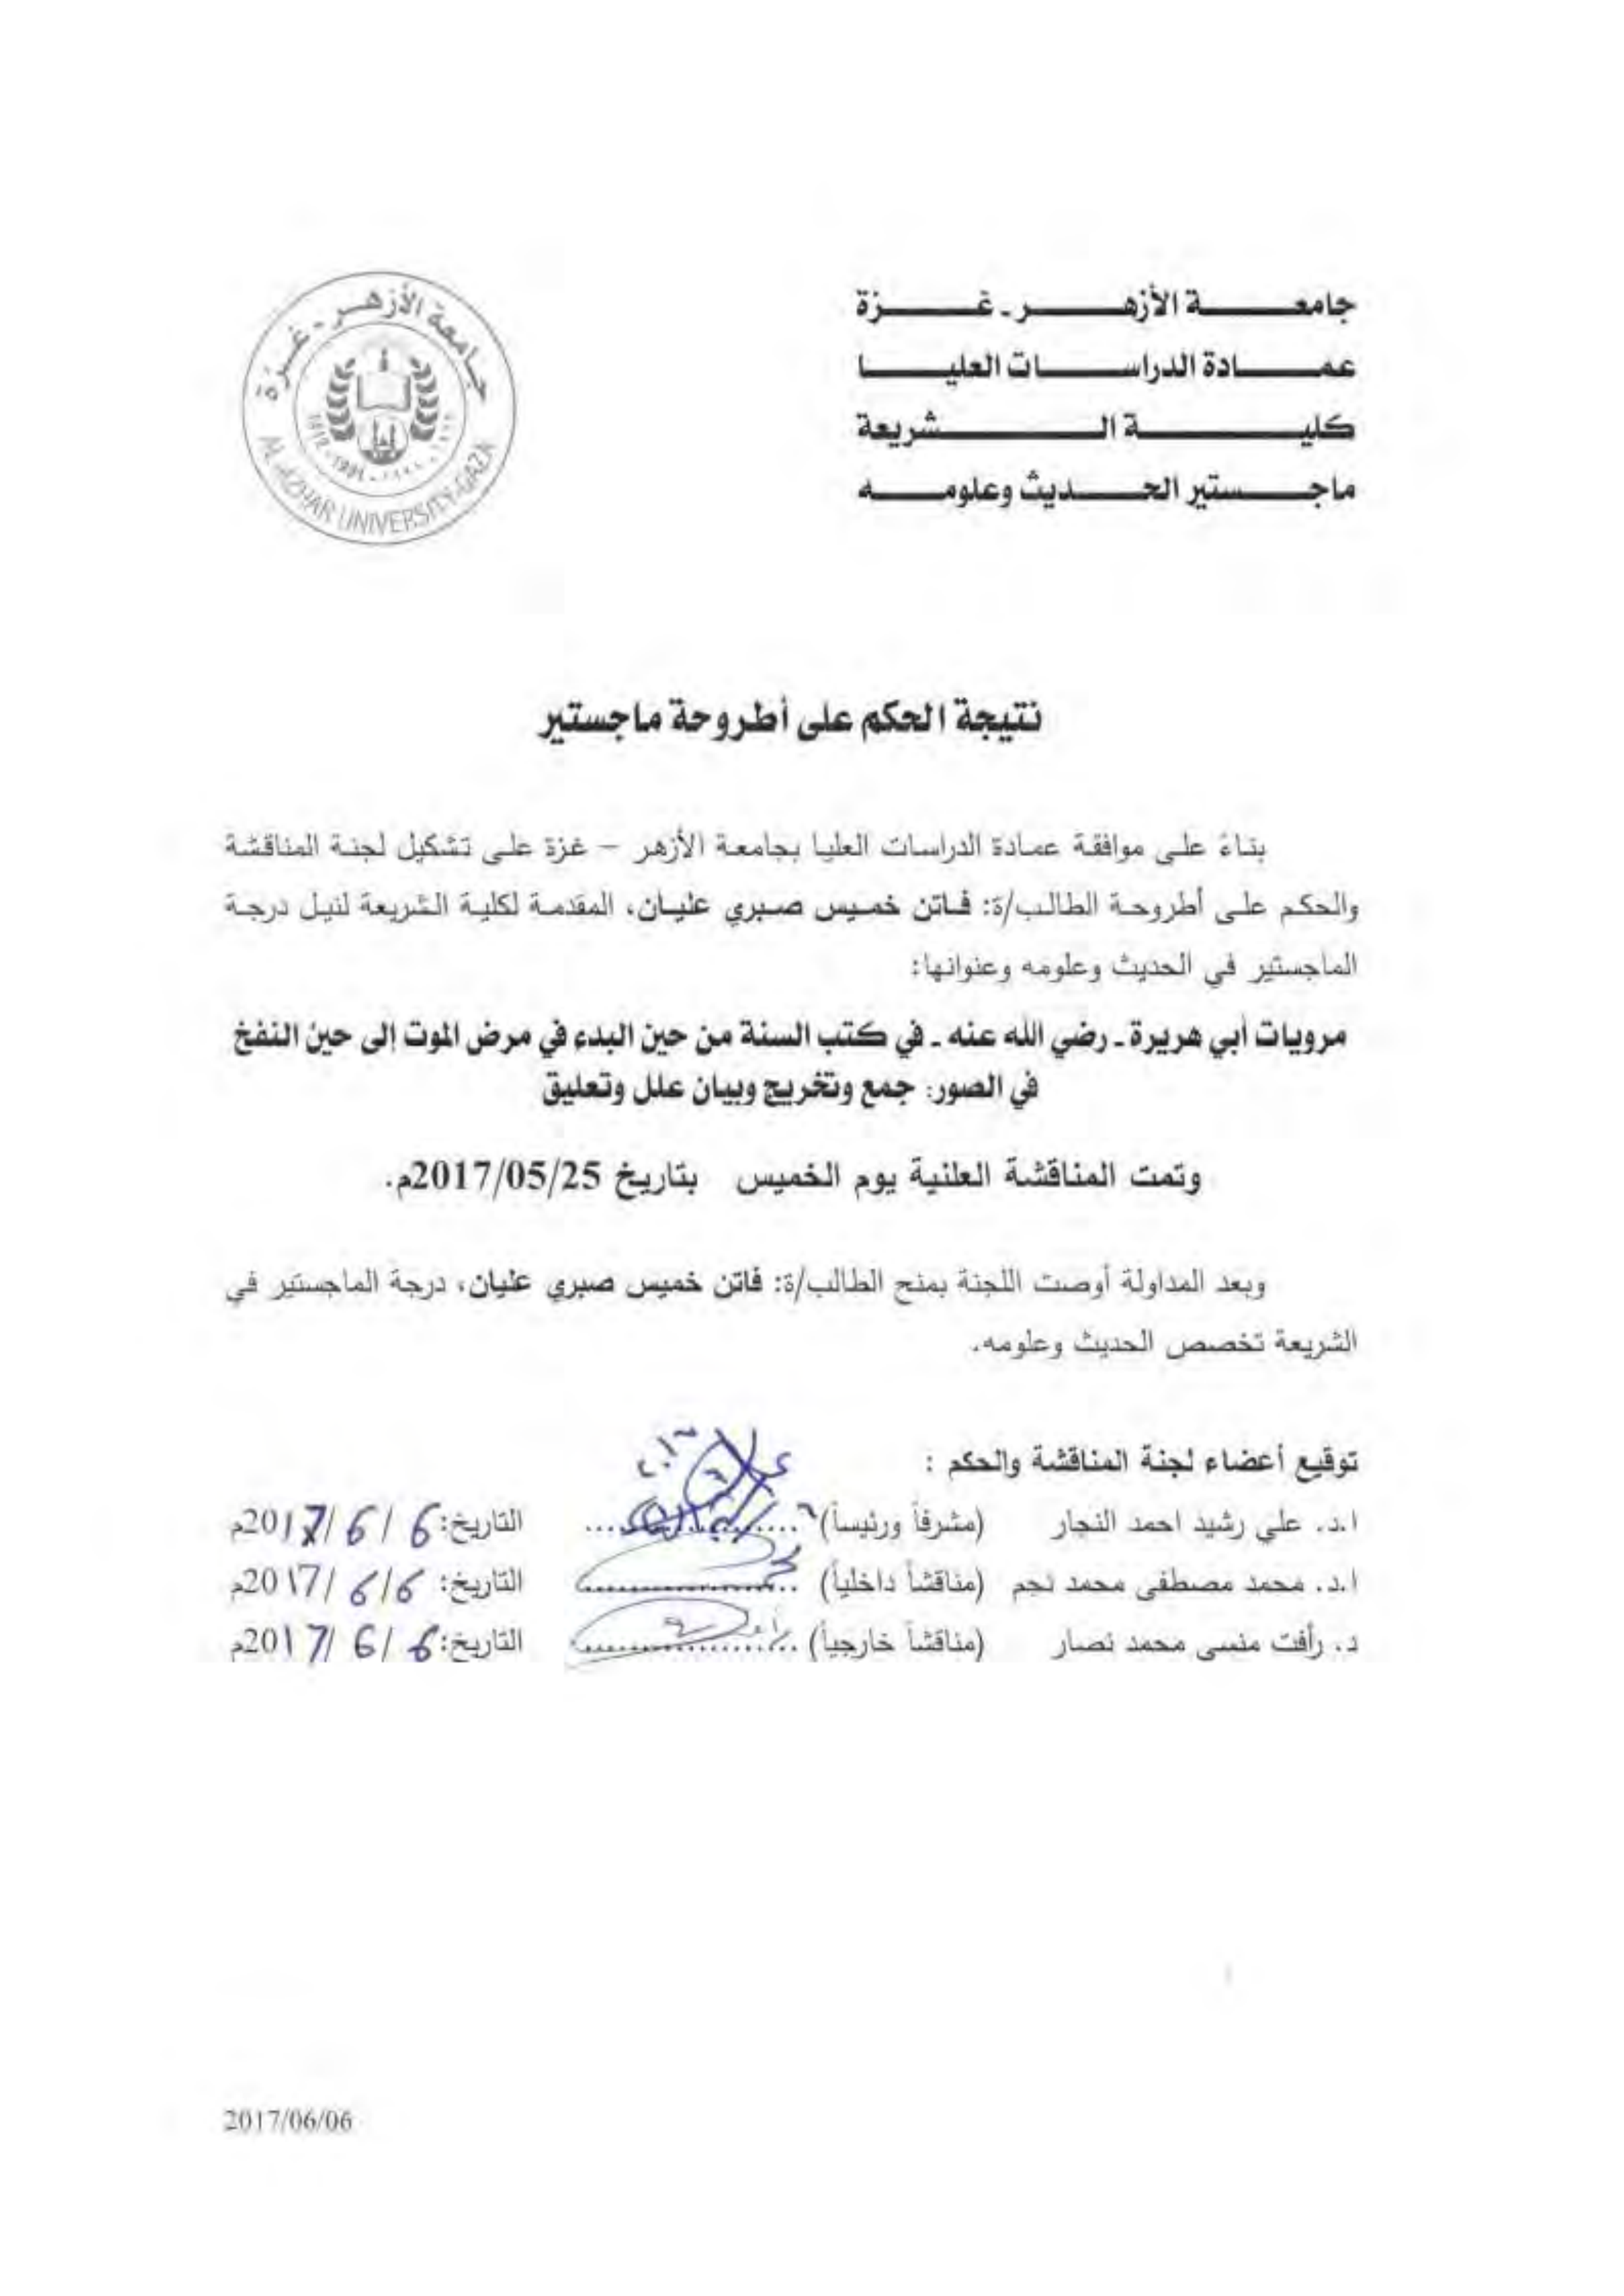 جامعة الأزهر - غزة
عمادة الدراسات العليا
كلية الشريعة
ماجستير الحديث وعلومه
جامعة الأزهر - غزة
AL-AZHAR UNIVERSITY-GAZA
نتيجة الحكم على أطروحة ماجستير
بناءً على موافقة عمادة الدراسات العليا بجامعة الأزهر – غزة على تشكيل لجنة المناقشة
والحكم على أطروحة الطالب/ة: فاتن خميس صبري عليان، المقدمة لكلية الشريعة لنيل درجة
الماجستير في الحديث وعلومه وعنوانها:
مرويات أبي هريرة - رضي الله عنه - في كتب السنة من حين البدء في مرض الموت إلى حين النفخ
في الصور: جمع وتخريج وبيان علل وتعليق
وتمت المناقشة العلنية يوم الخميس بتاريخ 2017/05/25م.
وبعد المداولة أوصت اللجنة بمنح الطالب/ة: فاتن خميس صبري عليان، درجة الماجستير في
الشريعة تخصص الحديث وعلومه.
توقيع أعضاء لجنة المناقشة والحكم :
ا.د. علي رشيد احمد النجار (مشرفاً ورئيساً) .............. التاريخ: 6 / 6 /2017م
ا.د. محمد مصطفى محمد نجم (مناقشاً داخلياً) .............. التاريخ: 6/6 /2017م
د. رأفت منسى محمد نصار (مناقشاً خارجياً) .............. التاريخ: 6 / 6 /2017م
2017/06/06